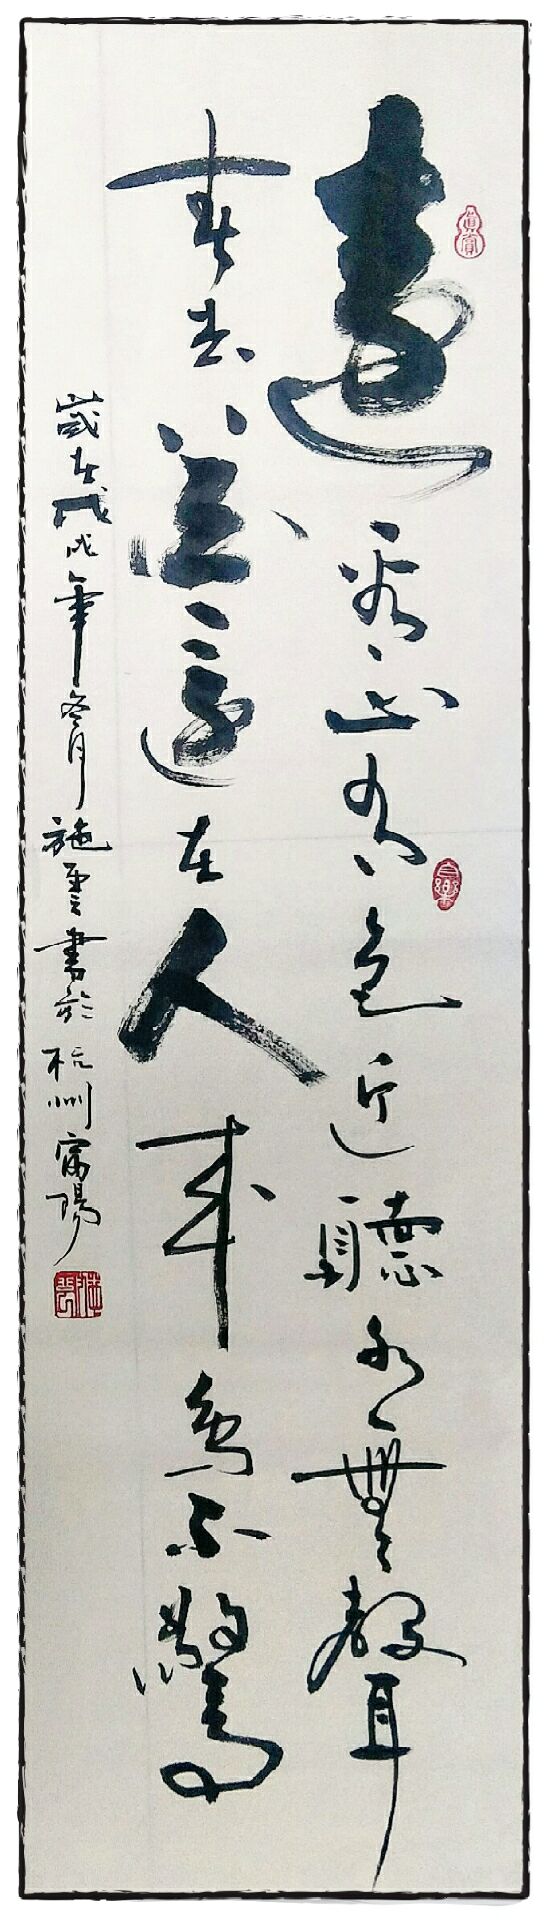 真賞
遠看山有色近聽水無聲
春去花還在人來鳥不驚
歲在戊戌年冬月施雲書於杭州富陽